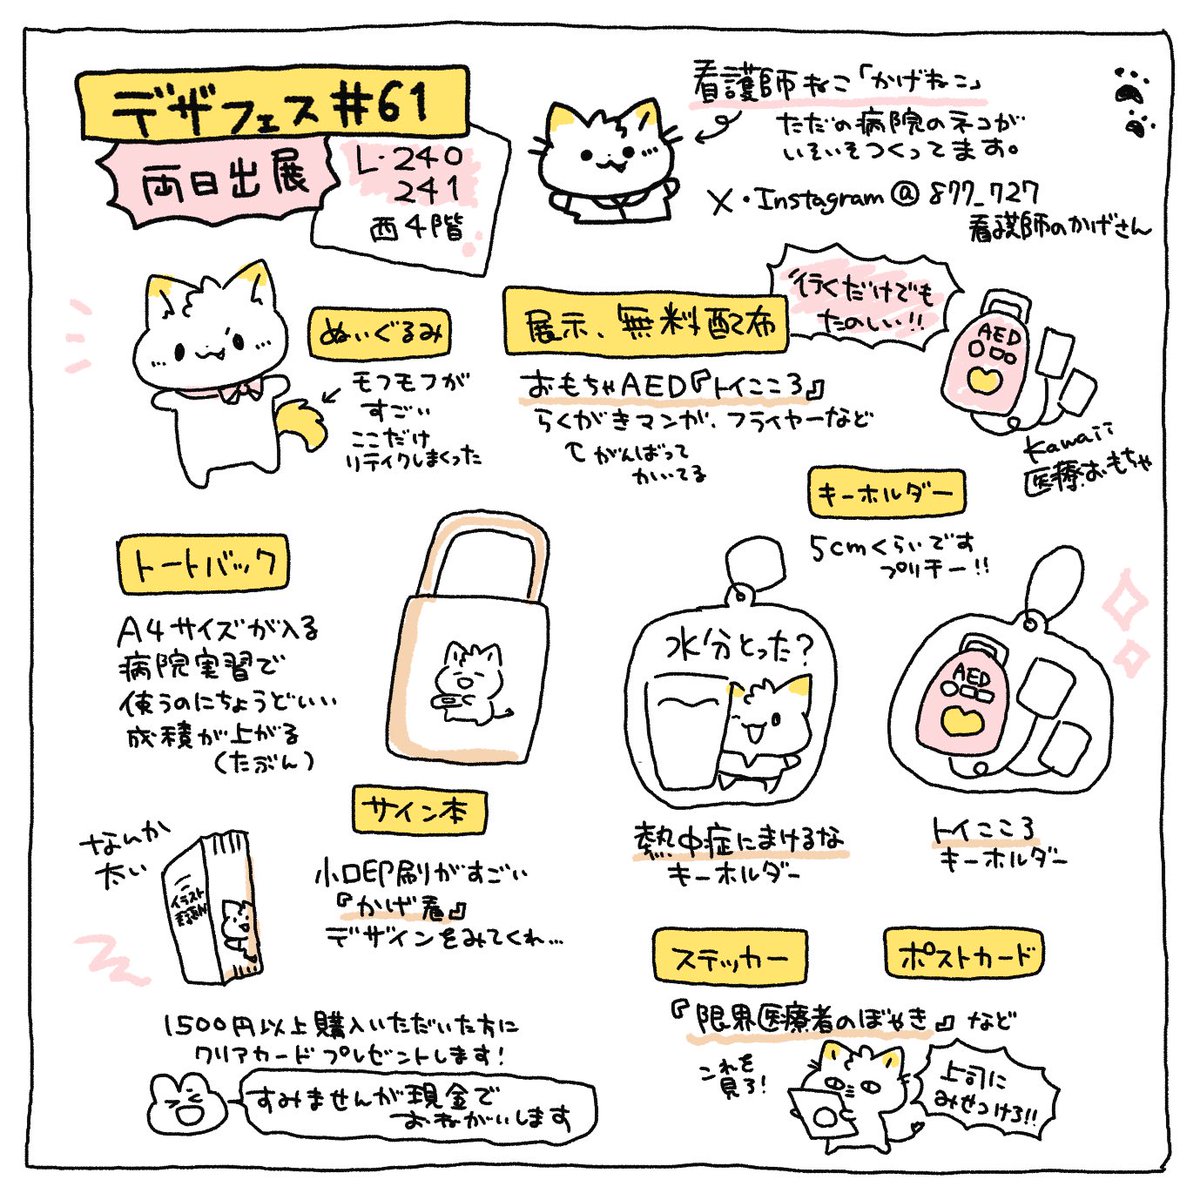 デザフェス#61
両日出展
L・240
241
西4階
看護師ねこ「かげねこ」
ただの病院のネコが
いそいそつくってます。
X・Instagram@877_727
看護師のかげさん
ぬいぐるみ
モフモフが
すごい
ここだけ
リテイクしまくった
展示、無料配布
行くだけでも
たのしい!!
おもちゃAED『トイこころ』
らくがきマンガ、フライヤーなど
がんばって
かいてる
AED
Kawaii
医療おもちゃ
キーホルダー
5cmくらいです
プリチー!!
トートバック
A4サイズが入る
病院実習で
使うのにちょうどいい
成積が上がる
(たぶん)
水分とった?
熱中症にまけるな
キーホルダー
AED
トイこころ
キーホルダー
サイン本
なんか
太い
イラスト
小口印刷がすごい
『かげ看』
デザインをみてくれ…
ステッカー
ポストカード
『限界医療者のぼやき』など
これを
見ろ!
上司に
みせつけろ!!
1500円以上購入いただいた方に
クリアカードプレゼントします!
すみませんが現金で
おねがいします